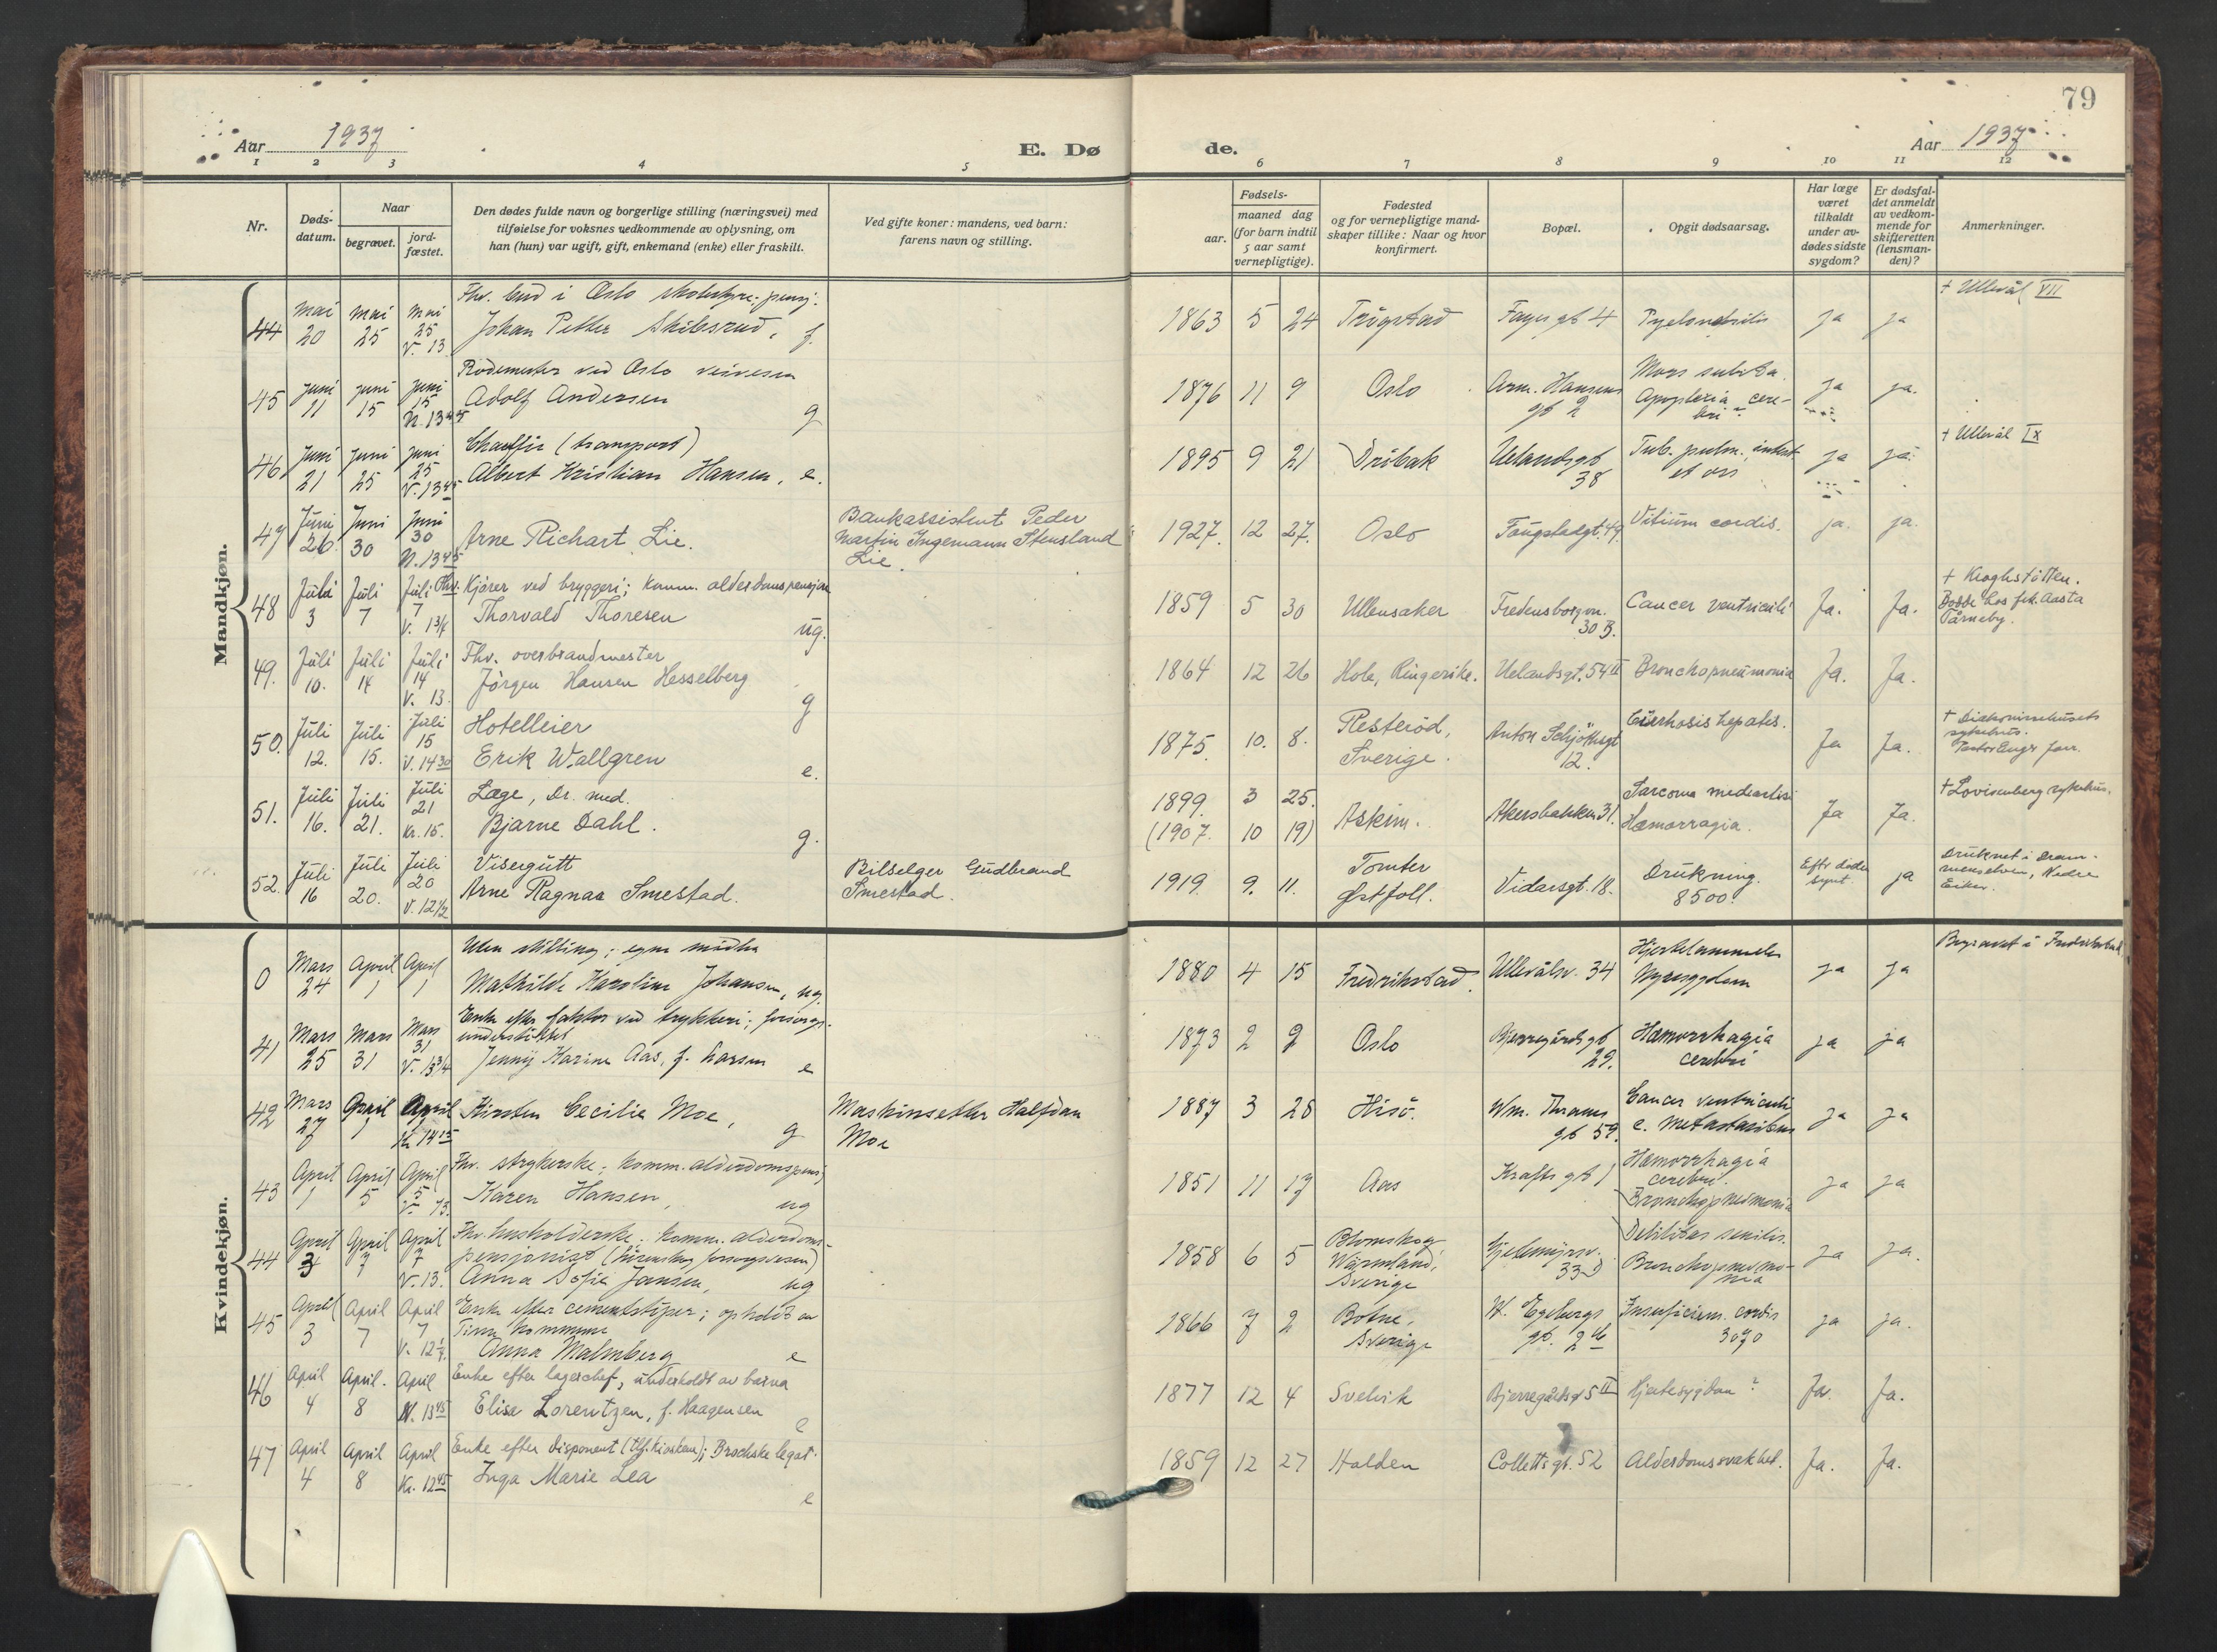 79
Aar 1937
E. Dø
de.
Aar 1937
1 2 3 4 5 6 7 8 9 10 11 12
Nr.
Døds-
datum.
Naar
begravet.
jord-
fæstet.
Den dødes fulde navn og borgerlige stilling (næringsvei) med
tilføielse for voksnes vedkommende av oplysning, om
han (hun) var ugift, gift, enkemand (enke) eller fraskilt.
Ved gifte koner: mandens, ved barn:
farens navn og stilling.
Fødsels-
aar.
maaned dag
(for barn indtil
5 aar samt
vernepligtige).
Fødested
og for vernepligtige mand-
skaper tillike: Naar og hvor
konfirmert.
Bopæl.
Opgit dødsaarsag.
Har læge
været
tilkaldt
under av-
dødes sidste
sygdom?
Er dødsfal-
det anmeldt
av vedkom-
mende for
skifteretten
(lensman-
den)?
Anmerkninger.
Mandkjøn.
Fhv. bud i Oslo skolestyre; pensj.
44 Mai 20 Mai 25 Mai 25 V. 13 Johan Petter Skibsrud, f.
1863 5 24 Trögstad Fayes gt 4 Pyelonefritis ja ja + Ullevål VII
Rodemester ved Oslo veivesen
45 Juni 11 Juni 15 Juni 15 N. 13 45 Adolf Andersen g
1876 11 9 Oslo Arm. Hansens gt 2 Mors subita. Apoplexia cere-
bri? ja ja.
Chauffør (transport)
46 Juni 21 Juni 25 Juni 25 V. 13 45 Albert Kristian Hansen, e.
1895 9 21 Dröbak Uelandsgt 38 Tub. pulm. intest.
et oss ja ja. + Ullevål IX
47 Juni 26. Juni 30 Juni 30 N. 13 45 Arne Richart Lie.
Bankassistent Peder
Martin Ingemann Stensland
Lie.
1927. 12 27. Oslo Fougstadgt. 49. Vitium cordis. ja. ja.
48 Juli 3 Juli 7 Juli 7 V. 13/4 Fhv. Kjører ved bryggeri; komm. alderdomspensjon
Thorvald Thoresen ug.
1859 5 30 Ullensaker Fredensborgvn. 30 B. Cancer ventriculi Ja. Ja. + Kroghstötten.
Bodde hos frk. Aasta
Tärneby.
49. Juli 10. Juli 14 Juli 14 V. 13. Fhv. overbrandmester
Jörgen Hansen Hesselberg g
1864 12 26 Hole, Ringerike. Uelandsgt. 54 II Bronchopneumonia Ja. Ja.
50. Juli 12. Juli 15. Juli 15 V. 14 30 Hotelleier
Erik Wallgren e.
1875. 10. 8. Resteröd,
Sverige. Anton Schjöthsgt 12. Cirrhosis hepatis. Ja Ja. + Diakonissehusets
sykehus.
Pastor Enger forr.
51. Juli 16. Juli 21. Juli 21 Kr. 15. Læge, Dr. med.
Bjarne Dahl. g.
1899. 3 25.
(1907. 10 19) Askim. Akersbakken 31. Sarcoma mediastini
Hæmorragia. Ja Ja. + Lovisenberg sykehus.
52. Juli 16 Juli 20. Juli 20 V. 12 1/2 Visergutt
Arne Ragnar Smestad.
Bilselger Gudbrand
Smestad.
1919. 9. 11. Tomter
Østfoll. Vidarsgt. 18. Drukning.
8500. Efter döden
synt ja Druknet i Dram-
menselven, Nedre
Eiker.
Kvindekjøn.
Uten stilling; egne midler
0 Mars 24 April 1 April 1 Mathilde Karoline Johansen, ug.
1880 4 15 Fredrikstad. Ullevålsv. 34 Hjertelammelse
Nyresygdom ja ja Begravet i Fredrikstad
Enke efter faktor ved trykkeri; forsorgs-
understöttet
41 Mars 25 Mars 31 Mars 31 V. 13 1/4 Jenny Karine Aas, f. Larsen e
1873 2 9 Oslo Bjerregårds gt 29. Hæmorrhagia
cerebri ja ja
42 Mars 27 April 1 April 1 Kr 14 15 Kirsten Cecilie Moe, g
Maskinsetter Halfdan
Moe
1887 3 28 Hisö. Wm. Thranes gt 59. Cancer ventriculi
c. Metastasibus ja ja
Fhv. strykerske; komm. alderdomspensj
43 April 1 April 5 April 5 V. 13. Karen Hansen, ug
1851 11 17 Aas Krafts gt 1 Hæmorrhagia
cerebri.
Bronchopneumonia ja ja
Fhv. husholderske; komm. alderdoms-
pensjonist (Furenskog forsorgsvesen)
44 April 3 April 7 April 7 V. 13. Anna Sofie Jansen, ug
1858 6 5 Blomskog
Wärmland,
Sverige Gjetemyrsv. 33 D Debilitas senilis.
Bronchopneumo-
nia ja ja.
Enke efter cementstöper; opholdt av
Tinn kommune
45 April 3 April 7 April 7 V. 12 1/4. Anna Malmberg e
1866 7 2 Botne,
Sverige W. Egebergs gt. 2 Insuficiens. cordis
3070 ja ja.
46 April 4 April. 8 April N. 13 45 Enke efter lagerchef, underholdt av barna
Elise Lorentzen, f. Haagensen e
1877 12 4 Svelvik Bjerregårdsgt 5 II Hjertesygdom? Ja. Ja.
47 April 4 April 8 April Kr. 12 45 Enke efter disponent (tlf. kiosken); Brochske legat.
Inga Marie Lea e
1859 12 27 Halden Colletts gt. 52 Alderdomssvakhet. Ja. Ja.